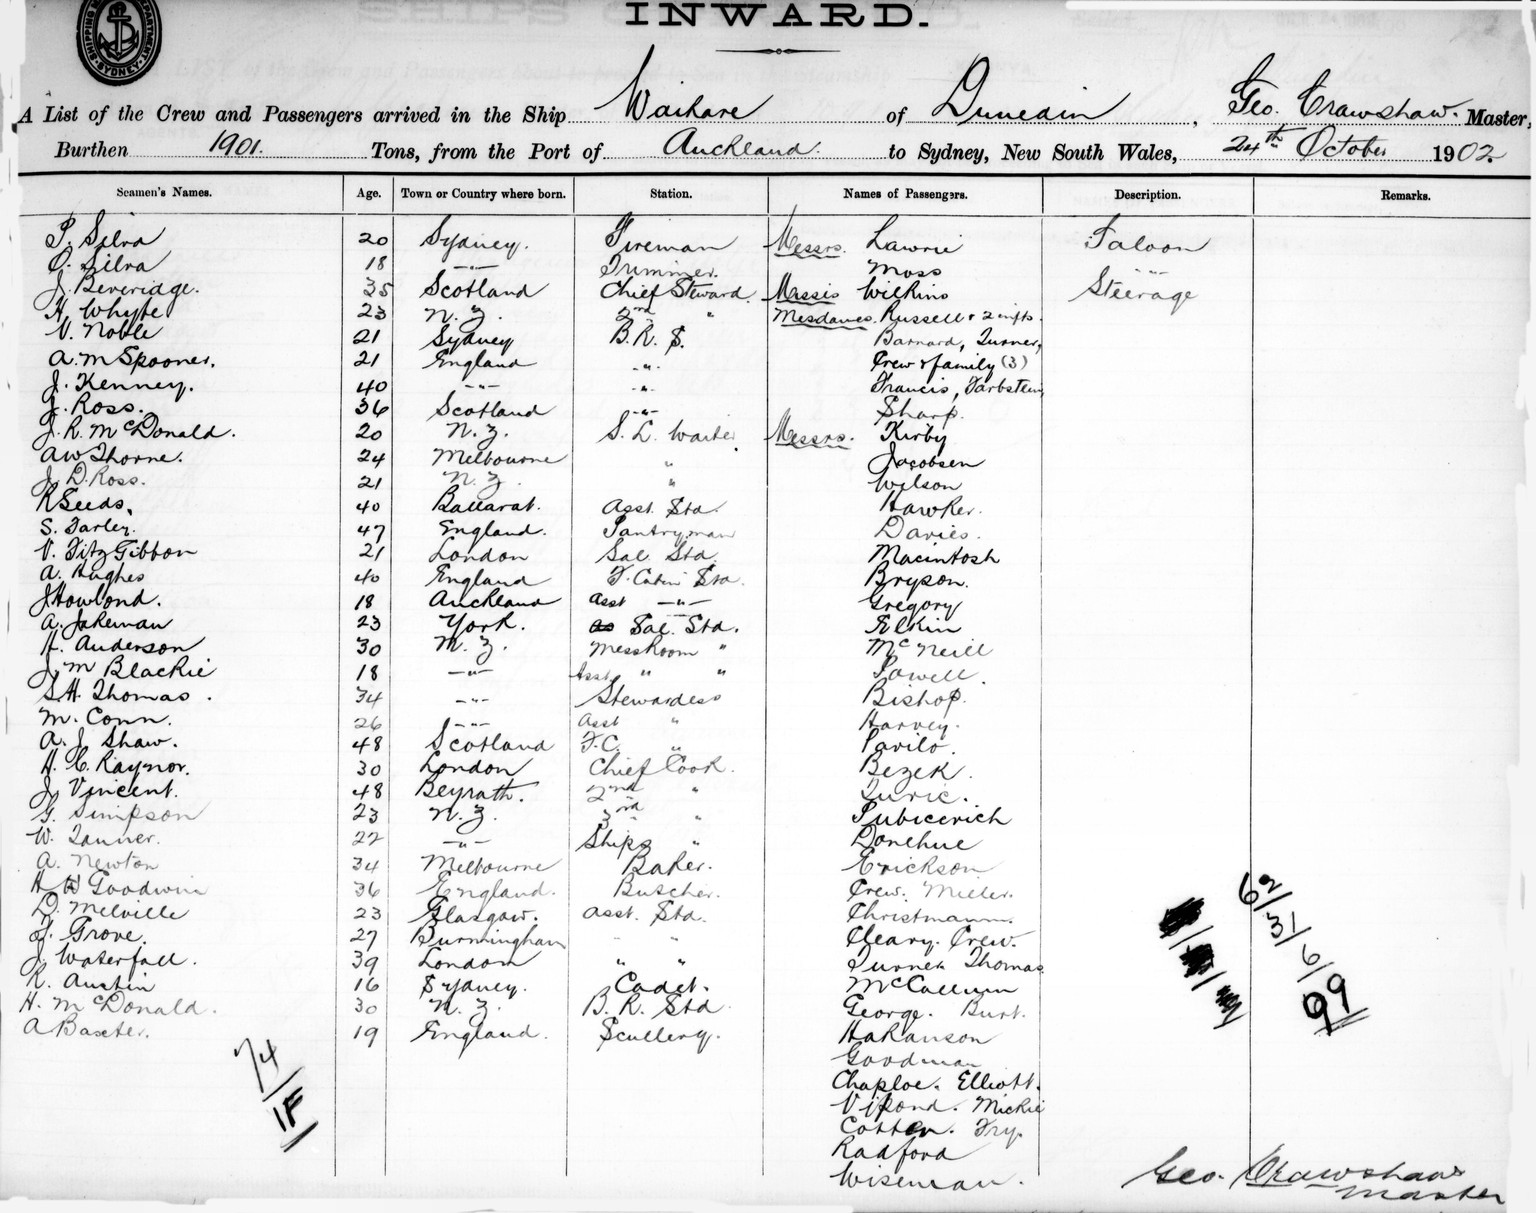 SHIPPING MASTER'S DEPARTMENT SYDNEY
INWARD.
A List of the Crew and Passengers arrived in the Ship Waikare of Dunedin, Geo. Crawshaw. Master,
Burthen 1901. Tons, from the Port of Auckland. to Sydney, New South Wales, 24th October 1902.
Seamen's Names. Age. Town or Country where born. Station. Names of Passengers. Description. Remarks.
P. Silva 20 Sydney. Fireman Messrs. Lawrie Saloon
O. Silva 18 -"- Trimmer. Moss -"-
J. Beveridge. 35 Scotland Chief Steward. Messrs Wilkins Steerage
H. Whyte 23 N.Z. 2nd " Mesdames. Russell & 2 infts.
V. Noble 21 Sydney B.R.S. Barnard, Turner,
A.M Spooner. 21 England -"- Crew & family (3)
J. Kenney. 40 -"- -"- Francis, Tarbstein,
J. Ross. 36 Scotland -"- Sharp.
J.R. McDonald. 20 N.Z. S.L. Waiter. Messrs. Kirby
AW Thorne. 24 Melbourne " Jacobsen
J. D. Ross. 21 N.Z. " Wilson
R Seeds. 40 Ballarat. Asst. Std. Hawker.
S. Farley. 47 England. Pantryman Davies.
V. FitzGibbon 21 London Sal. Std. Macintosh
A. Hughes 40 England F. Cabin Std. Bryson.
J Howlond. 18 Auckland Asst -"- Gregory
A. Jakeman 23 York. Sal. Std. Elkin
H. Anderson 30 N.Z. Messroom " McNeill
J. M Blackie 18 -"- Asst " " Powell.
S.H. Thomas. 34 -"- Stewardess Bishop.
M. Conn. 26 -"- Asst " Harvey.
A. J Shaw. 48 Scotland F.C. " Pavilo.
H. C. Raynor. 30 London Chief Cook. Bezek.
J. Vincent. 48 Beyrath. 2nd " Zuric.
G. Simpson 23 N.Z. 3rd " Pubicerich
W. Tanner. 22 -"- Ships " Donehue
A. Newton 34 Melbourne Baker. Erickson
H W Goodwin 36 England. Butcher. Crew. Miller.
D. Melville 23 Glasgow. Asst. Std. Christmann.
F. Grove. 27 Burmingham " " Cleary. Crew.
J. Waterfall. 39 London " " Turner Thomas
R. Austin 16 Sydney. Cadet. McCallum
H. McDonald. 30 N.Z. B.R. Std George. Burt.
A Baxter. 19 England. Scullery. Hakanson
Goodman
Chaploe. Elliott.
Vipond. Mickie
Cotten. Fry.
Radford
Wiseman.
74/1F
62/31/6/99
Geo. Crawshaw
Master